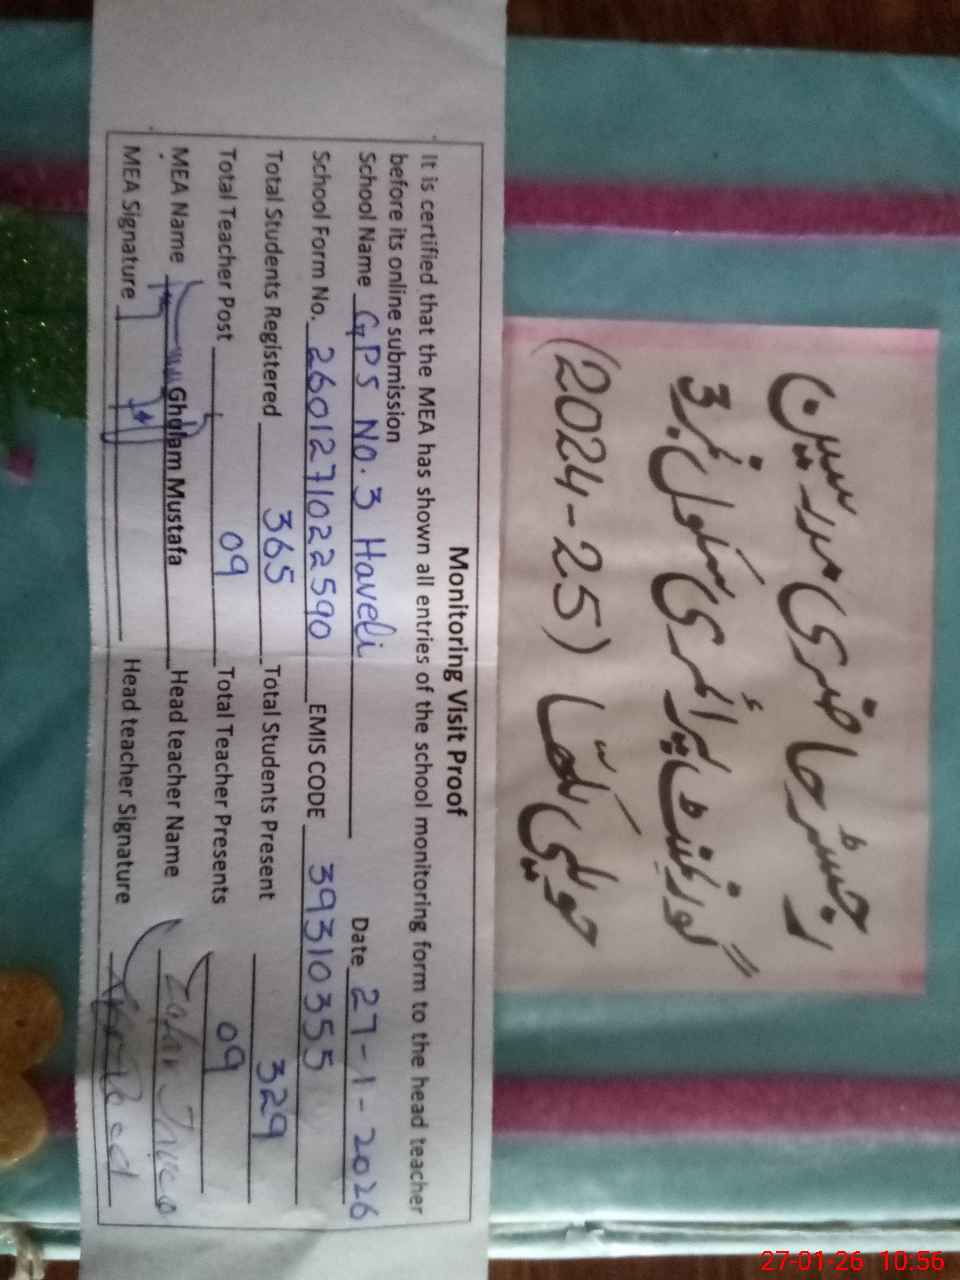 رجسٹر حاضری مدرسین
گورنمنٹ پرائمری سکول نمبر 3
حویلی لکھا (2024-25)
Monitoring Visit Proof
It is certified that the MEA has shown all entries of the school monitoring form to the head teacher
before its online submission
School Name GPS No. 3 Haveli Date 27-1-2026
School Form No. 2601271022590 EMIS CODE 39310355
Total Students Registered 365 Total Students Present 329
Total Teacher Post 09 Total Teacher Presents 09
MEA Name Gholam Mustafa Head teacher Name
MEA Signature Head teacher Signature
27-01-26 10:56